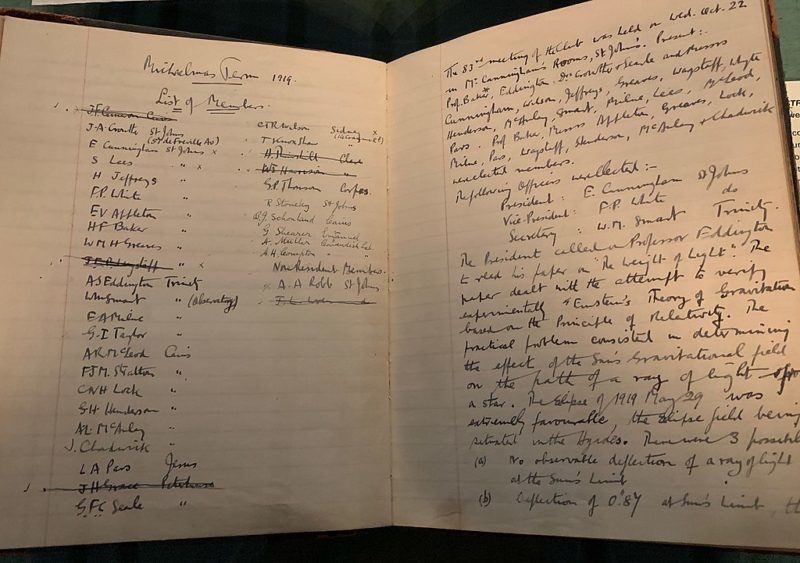 Michaelmas Term 1919.
List of Members.
J.A. Crowther St Johns
E Cunningham St Johns x
S Lees " x
H Jeffreys "
F.P. White "
E V Appleton "
H F Baker "
W M H Greaves "
A S Eddington Trinity
W M Smart " (Observatory)
E A Milne "
G. I Taylor "
A R McLeod Caius
F J M Stratton "
C N H Lock "
G H Henderson "
A L McAuley "
J. Chadwick "
L A Pars Jesus
J H Grace Peterhouse
G F C Searle "
C T R Wilson Sidney x
H Thirkill Clare
G.P. Thomson Corpus.
R Stoneley St Johns
B.F.J. Schonland Caius
G Shearer
A. Müller Cavendish Lab.
A H Compton "
Non Resident Members.
A. A Robb St Johns
The 83rd meeting of the Club was held on Wed. Oct. 22
in Mr Cunningham's Rooms, St John's. Present:-
Prof. Baker, Eddington, Drs Crowther & Searle and Messrs
Cunningham, Wilson, Jeffreys, Greaves, Wagstaff, Whyte
Henderson, McAuley, Smart, Milne, Lees, McLeod,
Pars. Prof Baker, Messrs Appleton, Greaves, Lock,
Milne, Pars, Wagstaff, Henderson, McAuley & Chadwick
were elected members.
The following Officers were elected:-
President: E. Cunningham St Johns
Vice-President: F.P. White do
Secretary: W.M. Smart Trinity.
The President called on Professor Eddington
to read his paper on "The Weight of Light". The
paper dealt with the attempt to verify
experimentally Einstein's Theory of Gravitation
based on the Principle of Relativity. The
practical problem consisted in determining
the effect of the Sun's Gravitational field
on the path of a ray of light from
a star. The Eclipse of 1919 May 29 was
extremely favourable, the Eclipse field being
situated in the Hyades. There were 3 possibil
(a) No observable deflection of a ray of light
at the Sun's Limb
(b) Deflection of 0".87 at Sun's Limb, th